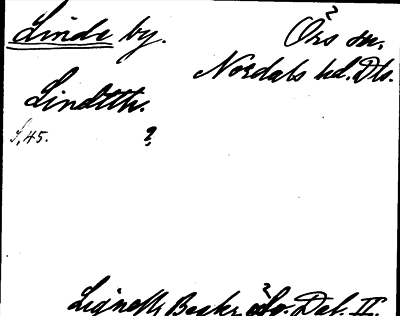 Linde by. Örs sn.
Nordals hd. Dls.
Lindtth.
S, 45. ?
Lignells Beskr. öfv. Dal. II.